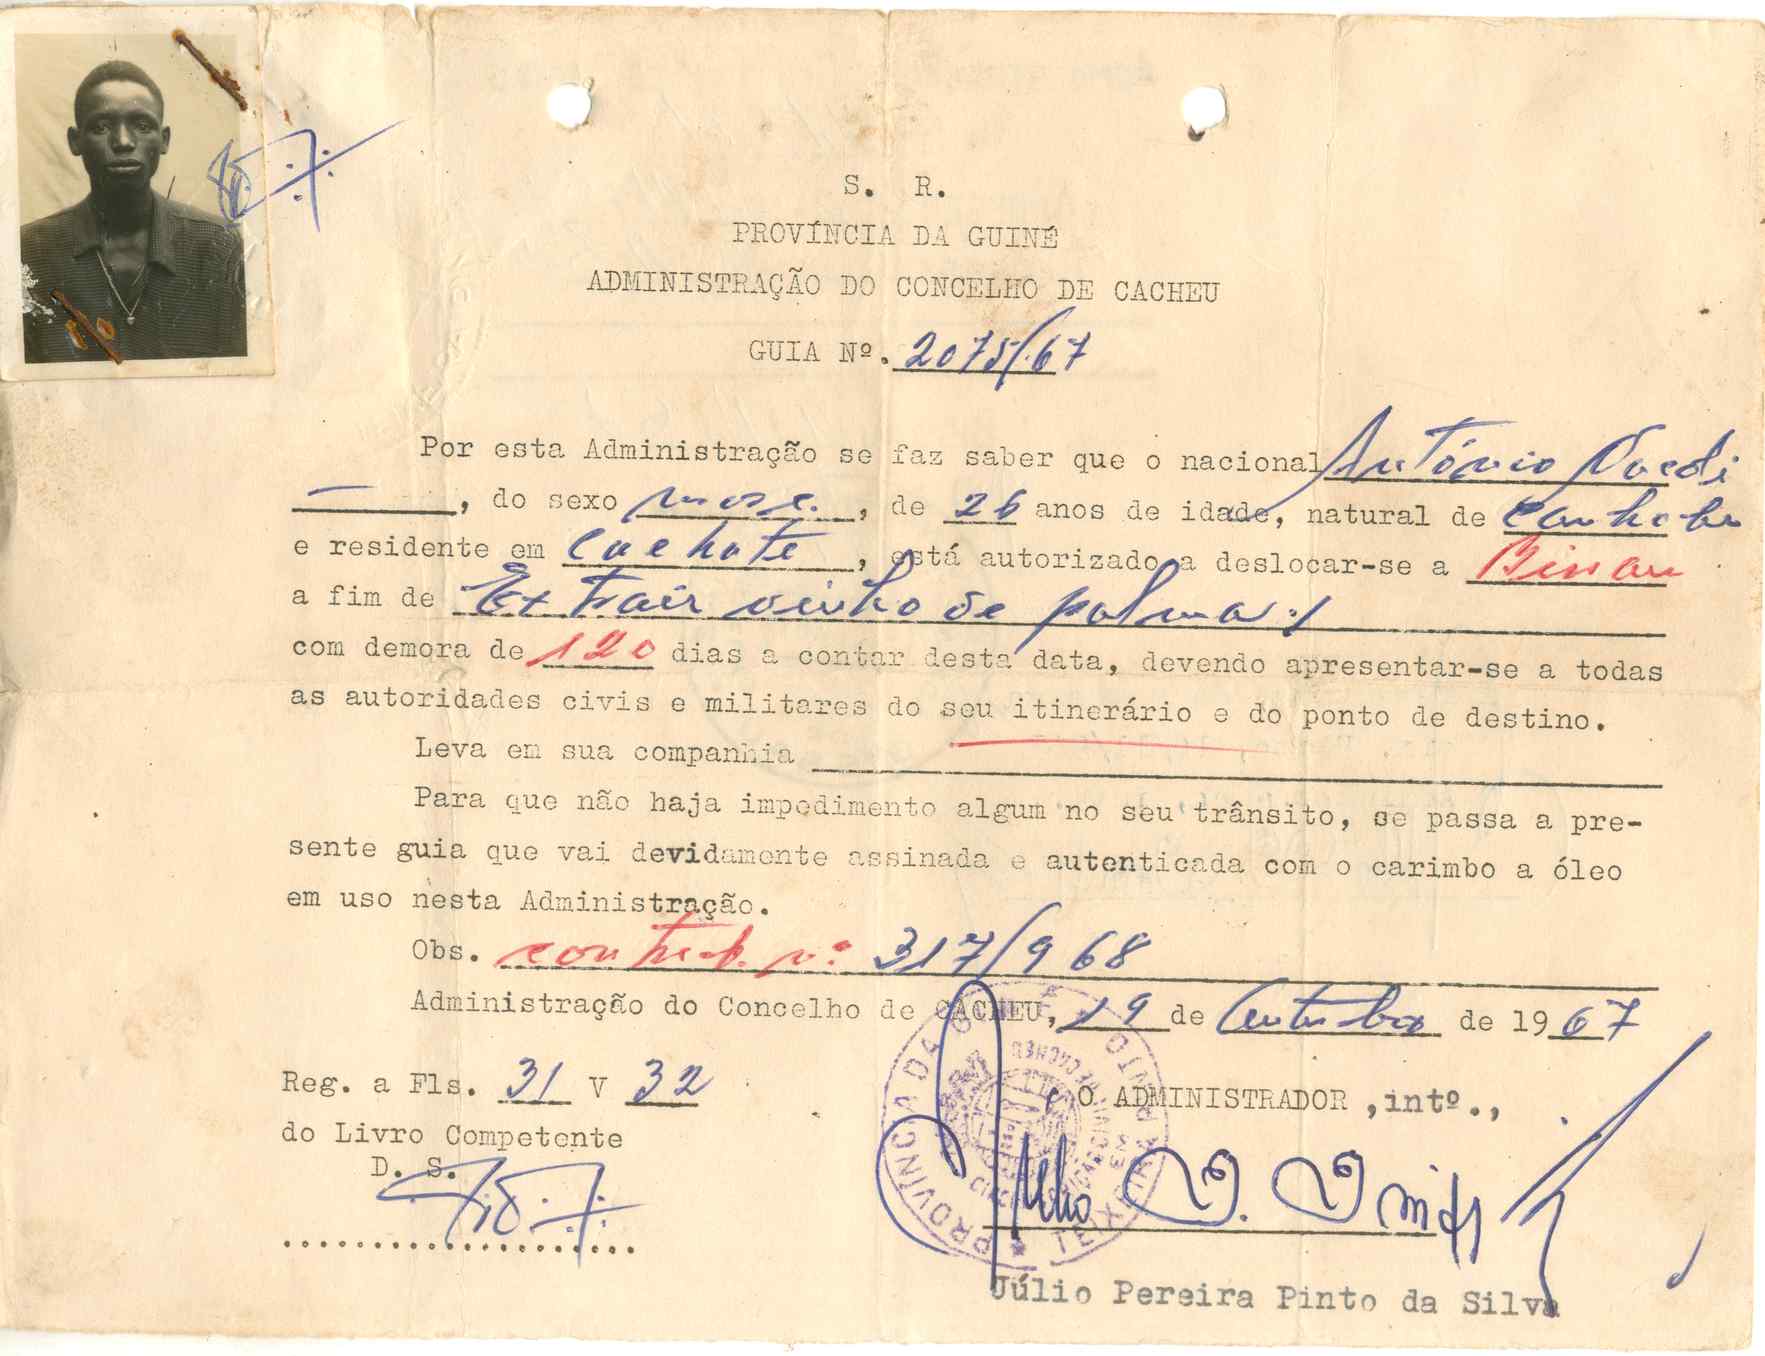 S. R.
PROVÍNCIA DA GUINÉ
ADMINISTRAÇÃO DO CONCELHO DE CACHEU
GUIA Nº. 2075/67
Por esta Administração se faz saber que o nacional António
—, do sexo masc., de 26 anos de idade, natural de
e residente em Cachote, está autorizado a deslocar-se a Binau
a fim de Extrair vinho de palma ./
com demora de 120 dias a contar desta data, devendo apresentar-se a todas
as autoridades civis e militares do seu itinerário e do ponto de destino.
Leva em sua companhia
Para que não haja impedimento algum no seu trânsito, se passa a pre-
sente guia que vai devidamente assinada e autenticada com o carimbo a óleo
em uso nesta Administração.
Obs. contrib. nº 317/968
Administração do Concelho de CACHEU, 19 de Outubro de 1967
Reg. a Fls. 31 V 32
do Livro Competente
D. S.
O ADMINISTRADOR, intº.,
PROVÍNCIA DA GUINÉ
TEIXEIRA PINTO
Júlio Pereira Pinto da Silva